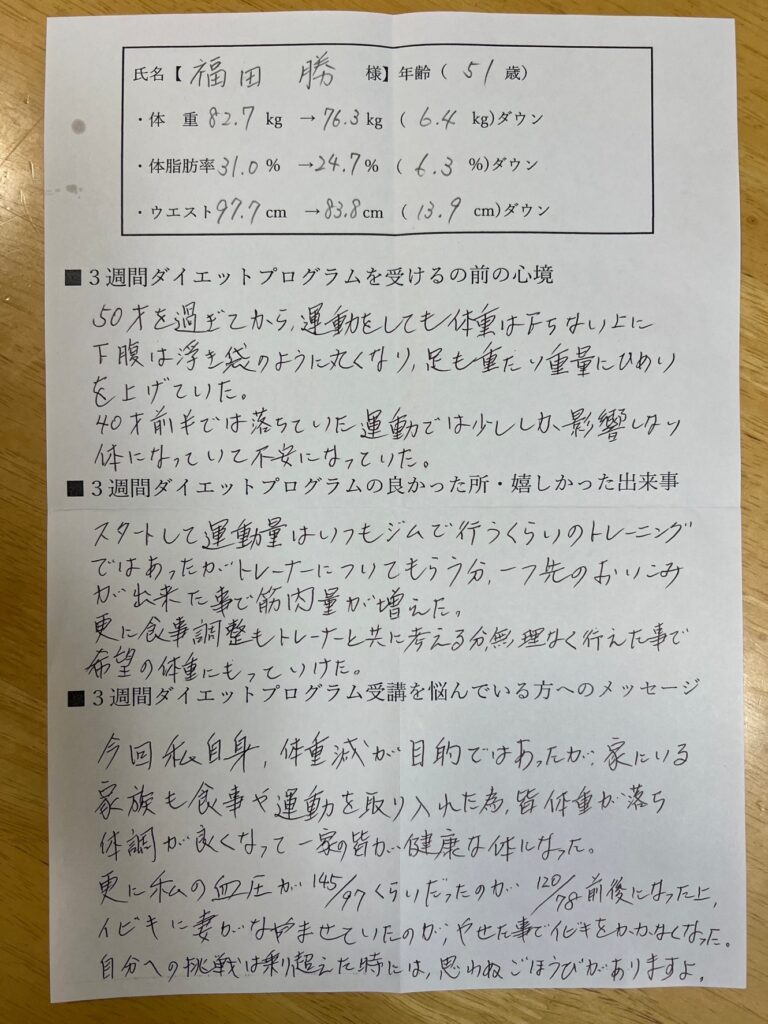 氏名【 福田 勝 様】年齢（ 51 歳）
・体 重 82.7 kg →76.3 kg （ 6.4 kg)ダウン
・体脂肪率 31.0 % →24.7 % （ 6.3 %)ダウン
・ウエスト 97.7 cm →83.8 cm （ 13.9 cm)ダウン
■３週間ダイエットプログラムを受けるの前の心境
50才を過ぎてから、運動をしても体重は下ちない上に
下腹は浮き袋のように丸くなり、足も重たい重量にひめい
を上げていた。
40才前半では落ちていた運動では少ししか、影響しない
体になっていて不安になっていた。
■３週間ダイエットプログラムの良かった所・嬉しかった出来事
スタートして運動量はいつもジムで行うくらいのトレーニング
ではあったがトレーナーについてもらう分、一つ先のおいこみ
が出来た事で筋肉量が増えた。
更に食事調整もトレーナーと共に考える分、無理なく行えた事で
希望の体重にもっていけた。
■３週間ダイエットプログラム受講を悩んでいる方へのメッセージ
今回私自身、体重減が目的ではあったが、家にいる
家族も食事や運動を取り入れた為、皆体重が落ち
体調が良くなって一家の皆が健康な体になった。
更に私の血圧が 145/97 くらいだったのが 120/78 前後になった上、
イビキに妻がなやませていたのが、やせた事でイビキをかかなくなった。
自分への挑戦は乗り超えた時には、思わぬごほうびがありますよ。